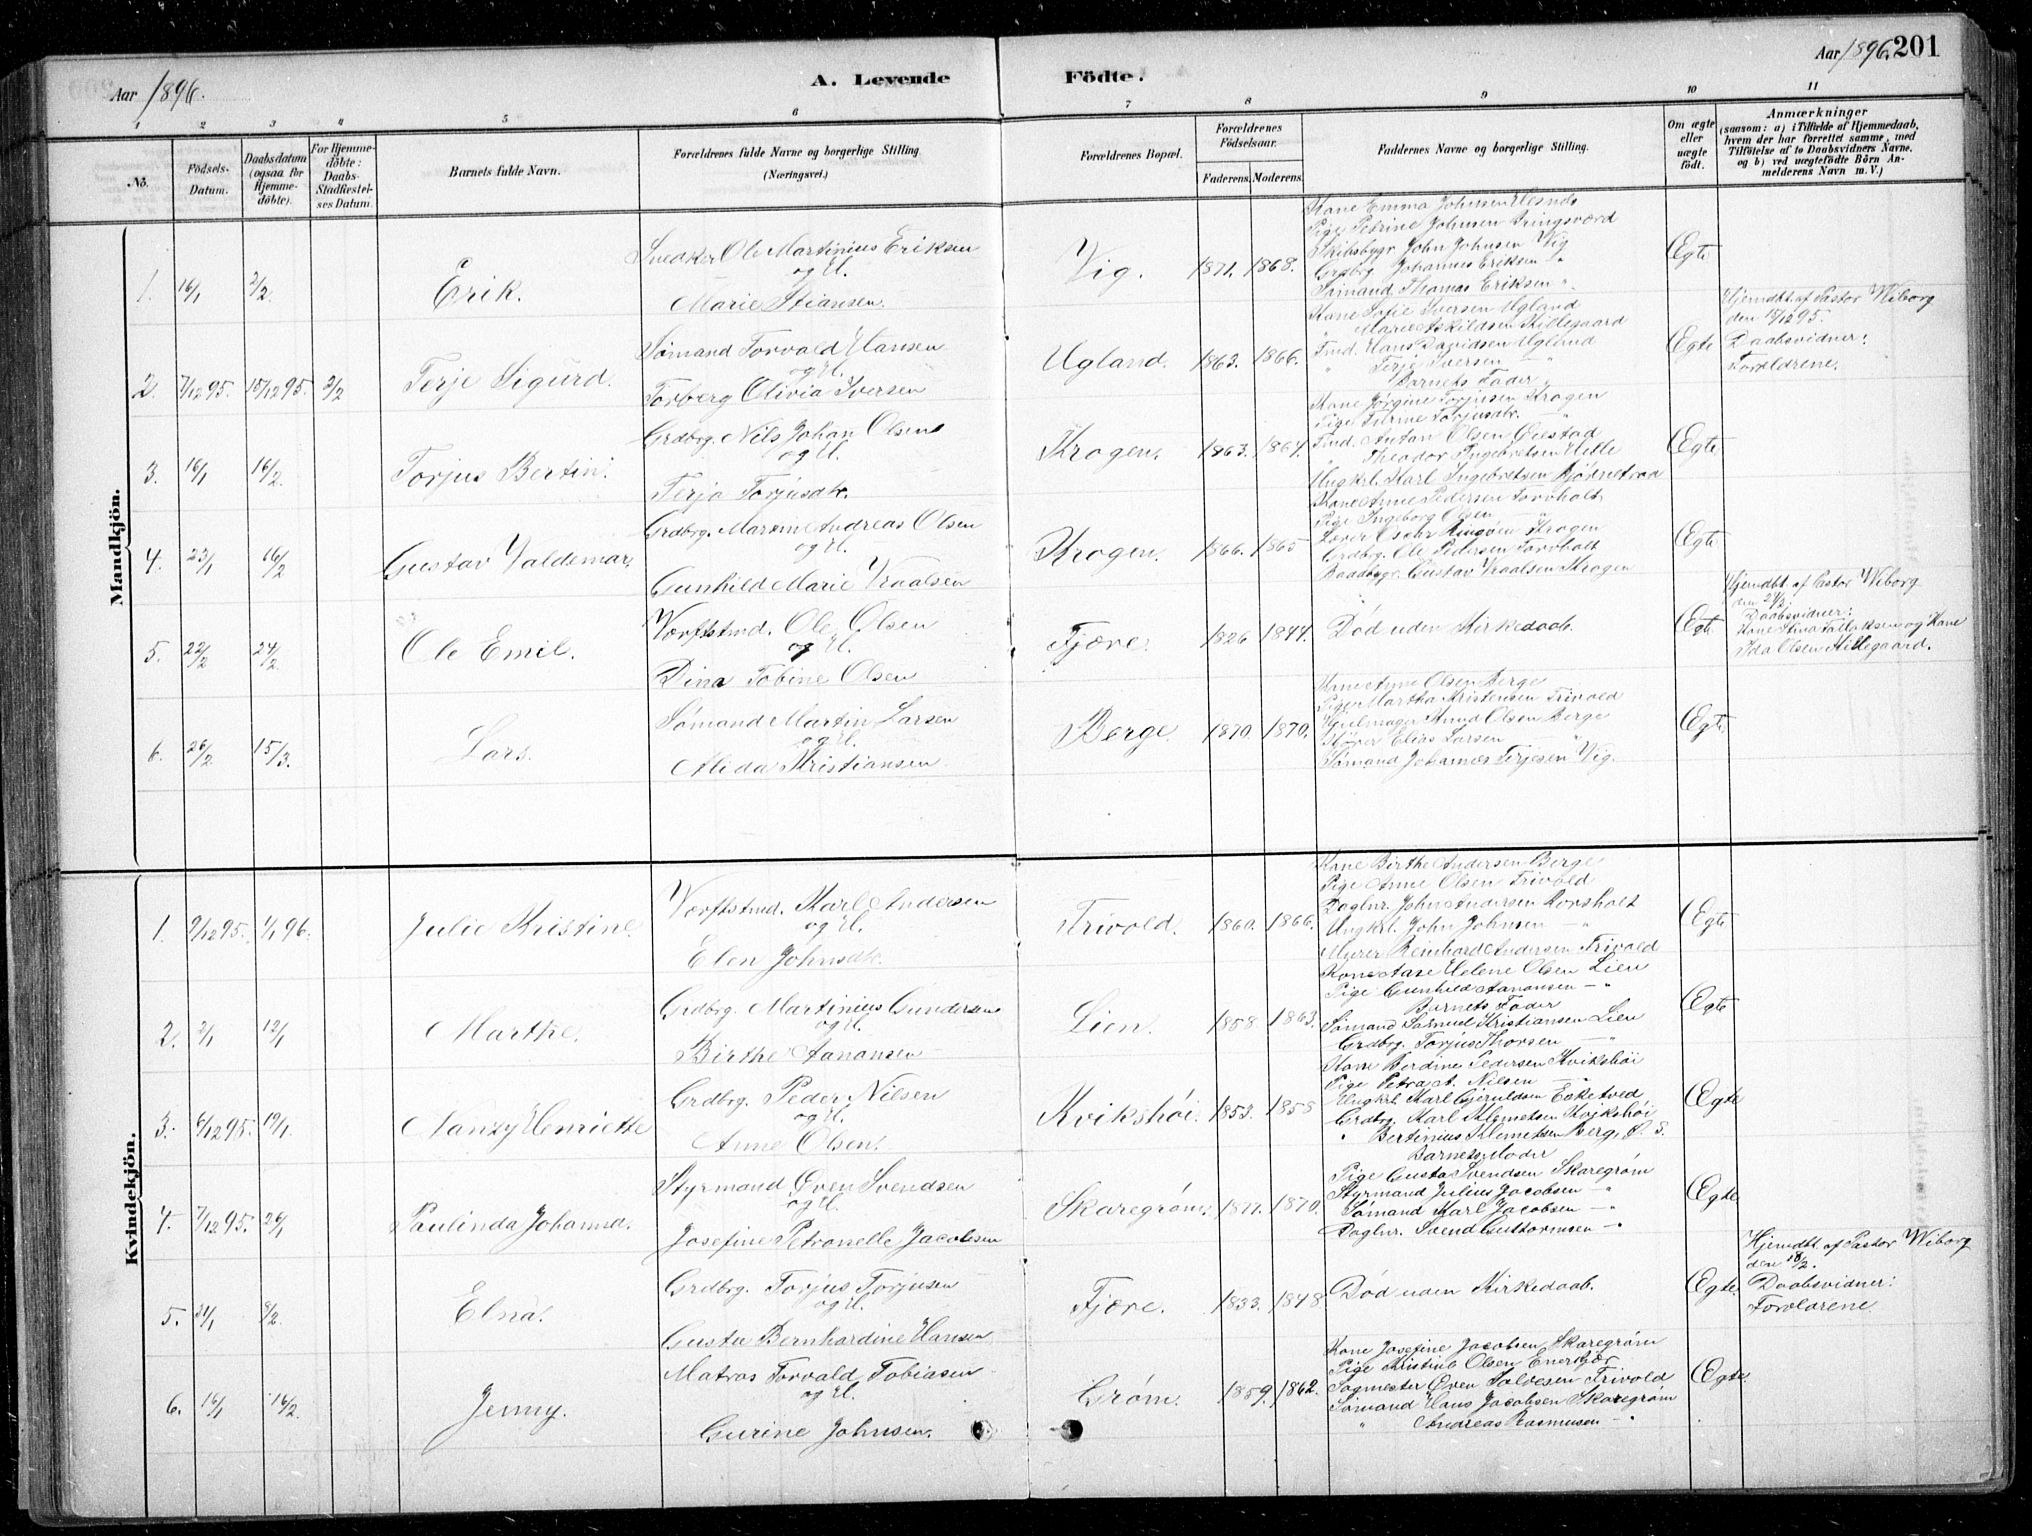 Aar 1896.
A. Levende
Födte.
Aar 1896. 201
1 2 3 4 5 6 7 8 9 10 11
No.
Födsels-Datum.
Daabsdatum (ogsaa for Hjemmedöbte).
For Hjemmedöbte: Daabs-Stadfæstelses Datum.
Barnets fulde Navn.
Forældrenes fulde Navne og borgerlige Stilling.
(Næringsvei.)
Forældrenes Bopæl.
Forældrenes Födselsaar.
Faderens. Moderens.
Faddernes Navne og borgerlige Stilling.
Om ægte eller uægte födt.
Anmærkninger
(saasom: a) i Tilfælde af Hjemmedaab, hvem der har forrettet samme, med Tilföielse af to Daabsvidners Navne, og b) ved uægtefödte Börn Anmelderens Navn m. V.)
Mandkjön.
1. 16/1 2/2 Erik.
Snedker Ole Martinius Eriksen
og H.
Marie Stiansen.
Vig. 1871. 1868.
Kone Emma Johnsen
Pige Petrine Johnsen Fringsværd
Skibsbygr John Johnsen Vig
Grdbrg. Johannes Eriksen "
Sømand Thomas Eriksen "
Egte
2. 7/12 95. 15/12 95. 2/2 Terje Sigurd.
Sømand Torvald Hansen
og H.
Torberg Olivia Iversen
Ugland. 1863. 1866.
Kone Sofie Iversen Ugland
" Marie Askildsen Hillegaard
Tmd. Hans Davidsen Ugland
" Terje Iversen "
Barnets Fader "
Egte
Hjemdbt. af Pastor Wiborg
den 15/12 95.
Daabsvidner:
Forældrene.
3. 16/1 16/2 Torjus Bertin.
Grdbrg. Nils Johan Olsen
og H.
Terja Torjusdtr.
Krogen. 1863. 1864.
Kone Jørgine Torjusen Krogen
Pige Turine Torjusdtr. "
Tmd. Anton Olsen Øiestad
" Theodor Ingebretsen Hille
Ungkrl. Karl Ingebretsen
Egte
4. 23/1 16/2 Gustav Valdemar.
Grdbrg. Andreas Olsen
og H.
Gunhilde Marie Vraalsen
Krogen. 1866. 1865
Kone Anne Pedersen Torvholt
Pige Ingeborg Olsen "
Lærer Oscar Ringøen Krogen
Grdbrg. Ole Pedersen Torvholt
Baadbygr. Gustav Vraalsen Krogen
Egte
5. 22/2 24/2 Ole Emil.
Værftstmd. Ole Olsen
og H.
Dina Tobine Olsen
Fjære. 1826 1844.
Død uden Kirkedaab.
Egte
Hjemdbt. af Pastor Wiborg
den 24/2.
Daabsvidner:
Kone Stina Tallaksen og Kone
Ida Olsen Hillegaard.
6. 26/2 15/3. Lars.
Sømand Martin Larsen
og H.
Alida Kristiansen.
Berge. 1870 1870.
Kone Anne Olsen Berge
Pige Martha Kristensen Trivold
Hjulmager Knud Olsen Berge
Elias Larsen "
Sømand Johannes Terjesen Vig.
Egte
Kvindekjön.
1. 9/12 95. 1/1 96. Julie Kristine.
Værftstmd. Karl Andersen
og H.
Elen Johnsdtr.
Trivold. 1860. 1866.
Kone Birthe Andersen Berge
Pige Anne Olsen Trivold
Daglnr. John Andersen Korsholt
Ungkrl. John Johnsen "
Murer Reinhard Andersen Trivold
Egte
2. 2/1 12/1 Marthe.
Grdbrg. Martinius Gundersen
og H.
Birthe Aanansen
Lien. 1858. 1863.
Kone Aase Helene Olsen Lien
Pige Gunhild Aanansen "
Barnets Fader
Sømand Samuel Kristiansen Lien
Grdbrg. Torjus Thorsen "
Egte
3. 6/12 95. 19/1. Nanzy Henriette
Grdbrg. Peder Nilsen
og H.
Anne Olsen.
Kvikshöi. 1853. 1855
Kone Berdine Pedersen Kvikshöi
Pige Petra A. Nilsen "
Ungkrl. Karl Gjeruldsen Esketved
Grdbrg. Karl Klemetsen Kvikshöi
" Bertinius Klemetsen Berg, Ø. S.
Egte
4. 7/12 95. 26/1 Paulinda Johanna.
Styrmand Øven Svendsen
og H.
Josefine Petronelle Jacobsen
Skaregrøm. 1877. 1870.
Barnets Moder
Pige Gusta Svendsen Skaregrøm
Styrmand Julius Jacobsen "
Sømand Karl Jacobsen "
Daglnr. Svend Guttormsen "
Egte
5. 31/1 8/2. Elna.
Grdbrg. Torjus Torjusen
og H.
Gusta Bernhardine Hansen
Fjære. 1833. 1848.
Død uden Kirkedaab.
Egte
Hjemdbt. af Pastor Wiborg
den 18/2.
Daabsvidner:
Forældrene
6. 16/1 16/2. Jenny.
Matros Torvald Tobiasen
og H.
Gurine Johnsen.
Grøm. 1859. 1862.
Kone Josefine Jacobsen Skaregrøm
Pige Kristine Olsen
Sagmester Øven Salvesen Trivold
Sømand Hans Jacobsen Skaregrøm
" Andreas Rasmusen "
Egte